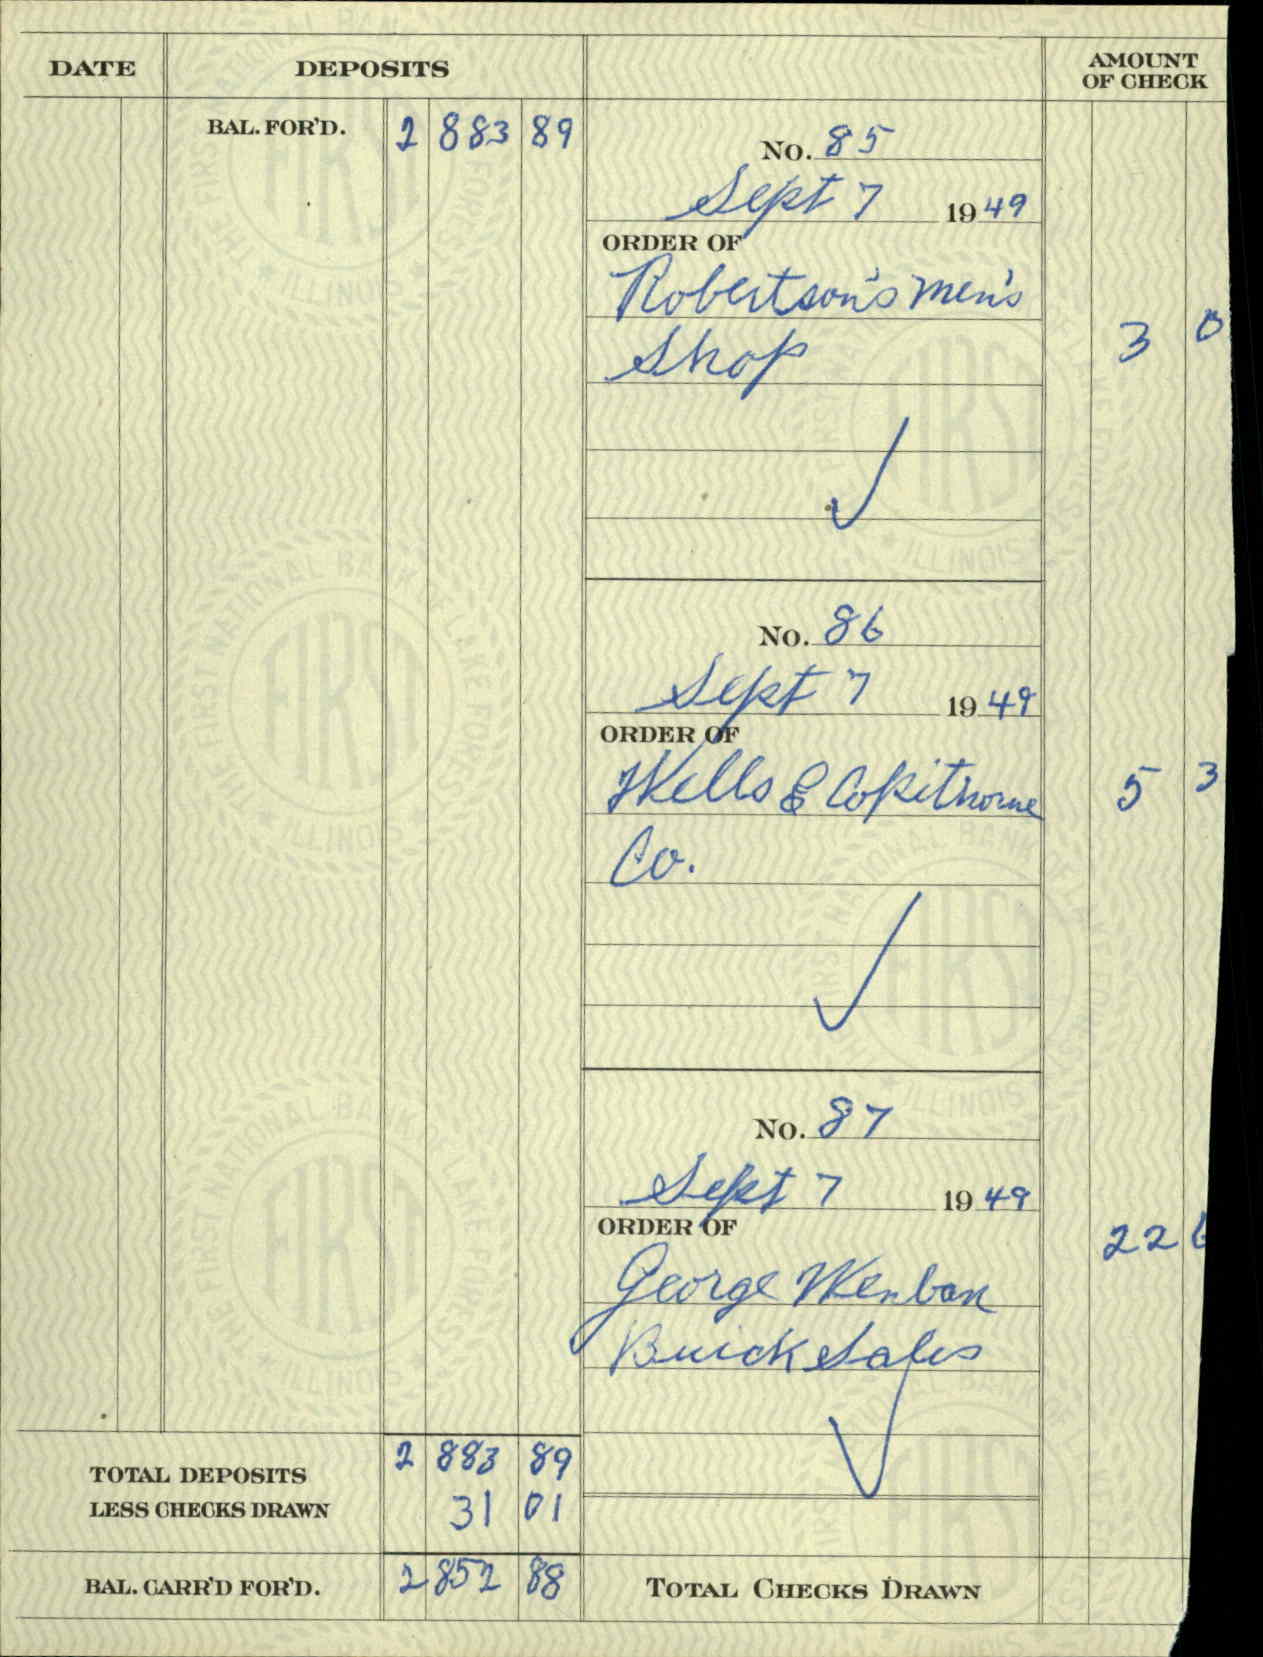 DATE DEPOSITS AMOUNT OF CHECK
BAL. FOR'D. 2 883 89
No. 85
Sept 7 1949
ORDER OF
Robertson's Men's
Shop 3 0
No. 86
Sept 7 1949
ORDER OF
Wells & Copithorne 5 3
Co.
No. 87
Sept 7 1949
ORDER OF
George Wenban 22 6
Buick Sales
TOTAL DEPOSITS 2 883 89
LESS CHECKS DRAWN 31 01
BAL. CARR'D FOR'D. 2 852 88
TOTAL CHECKS DRAWN
FIRST NATIONAL BANK OF LAKE FOREST
FIRST
ILLINOIS